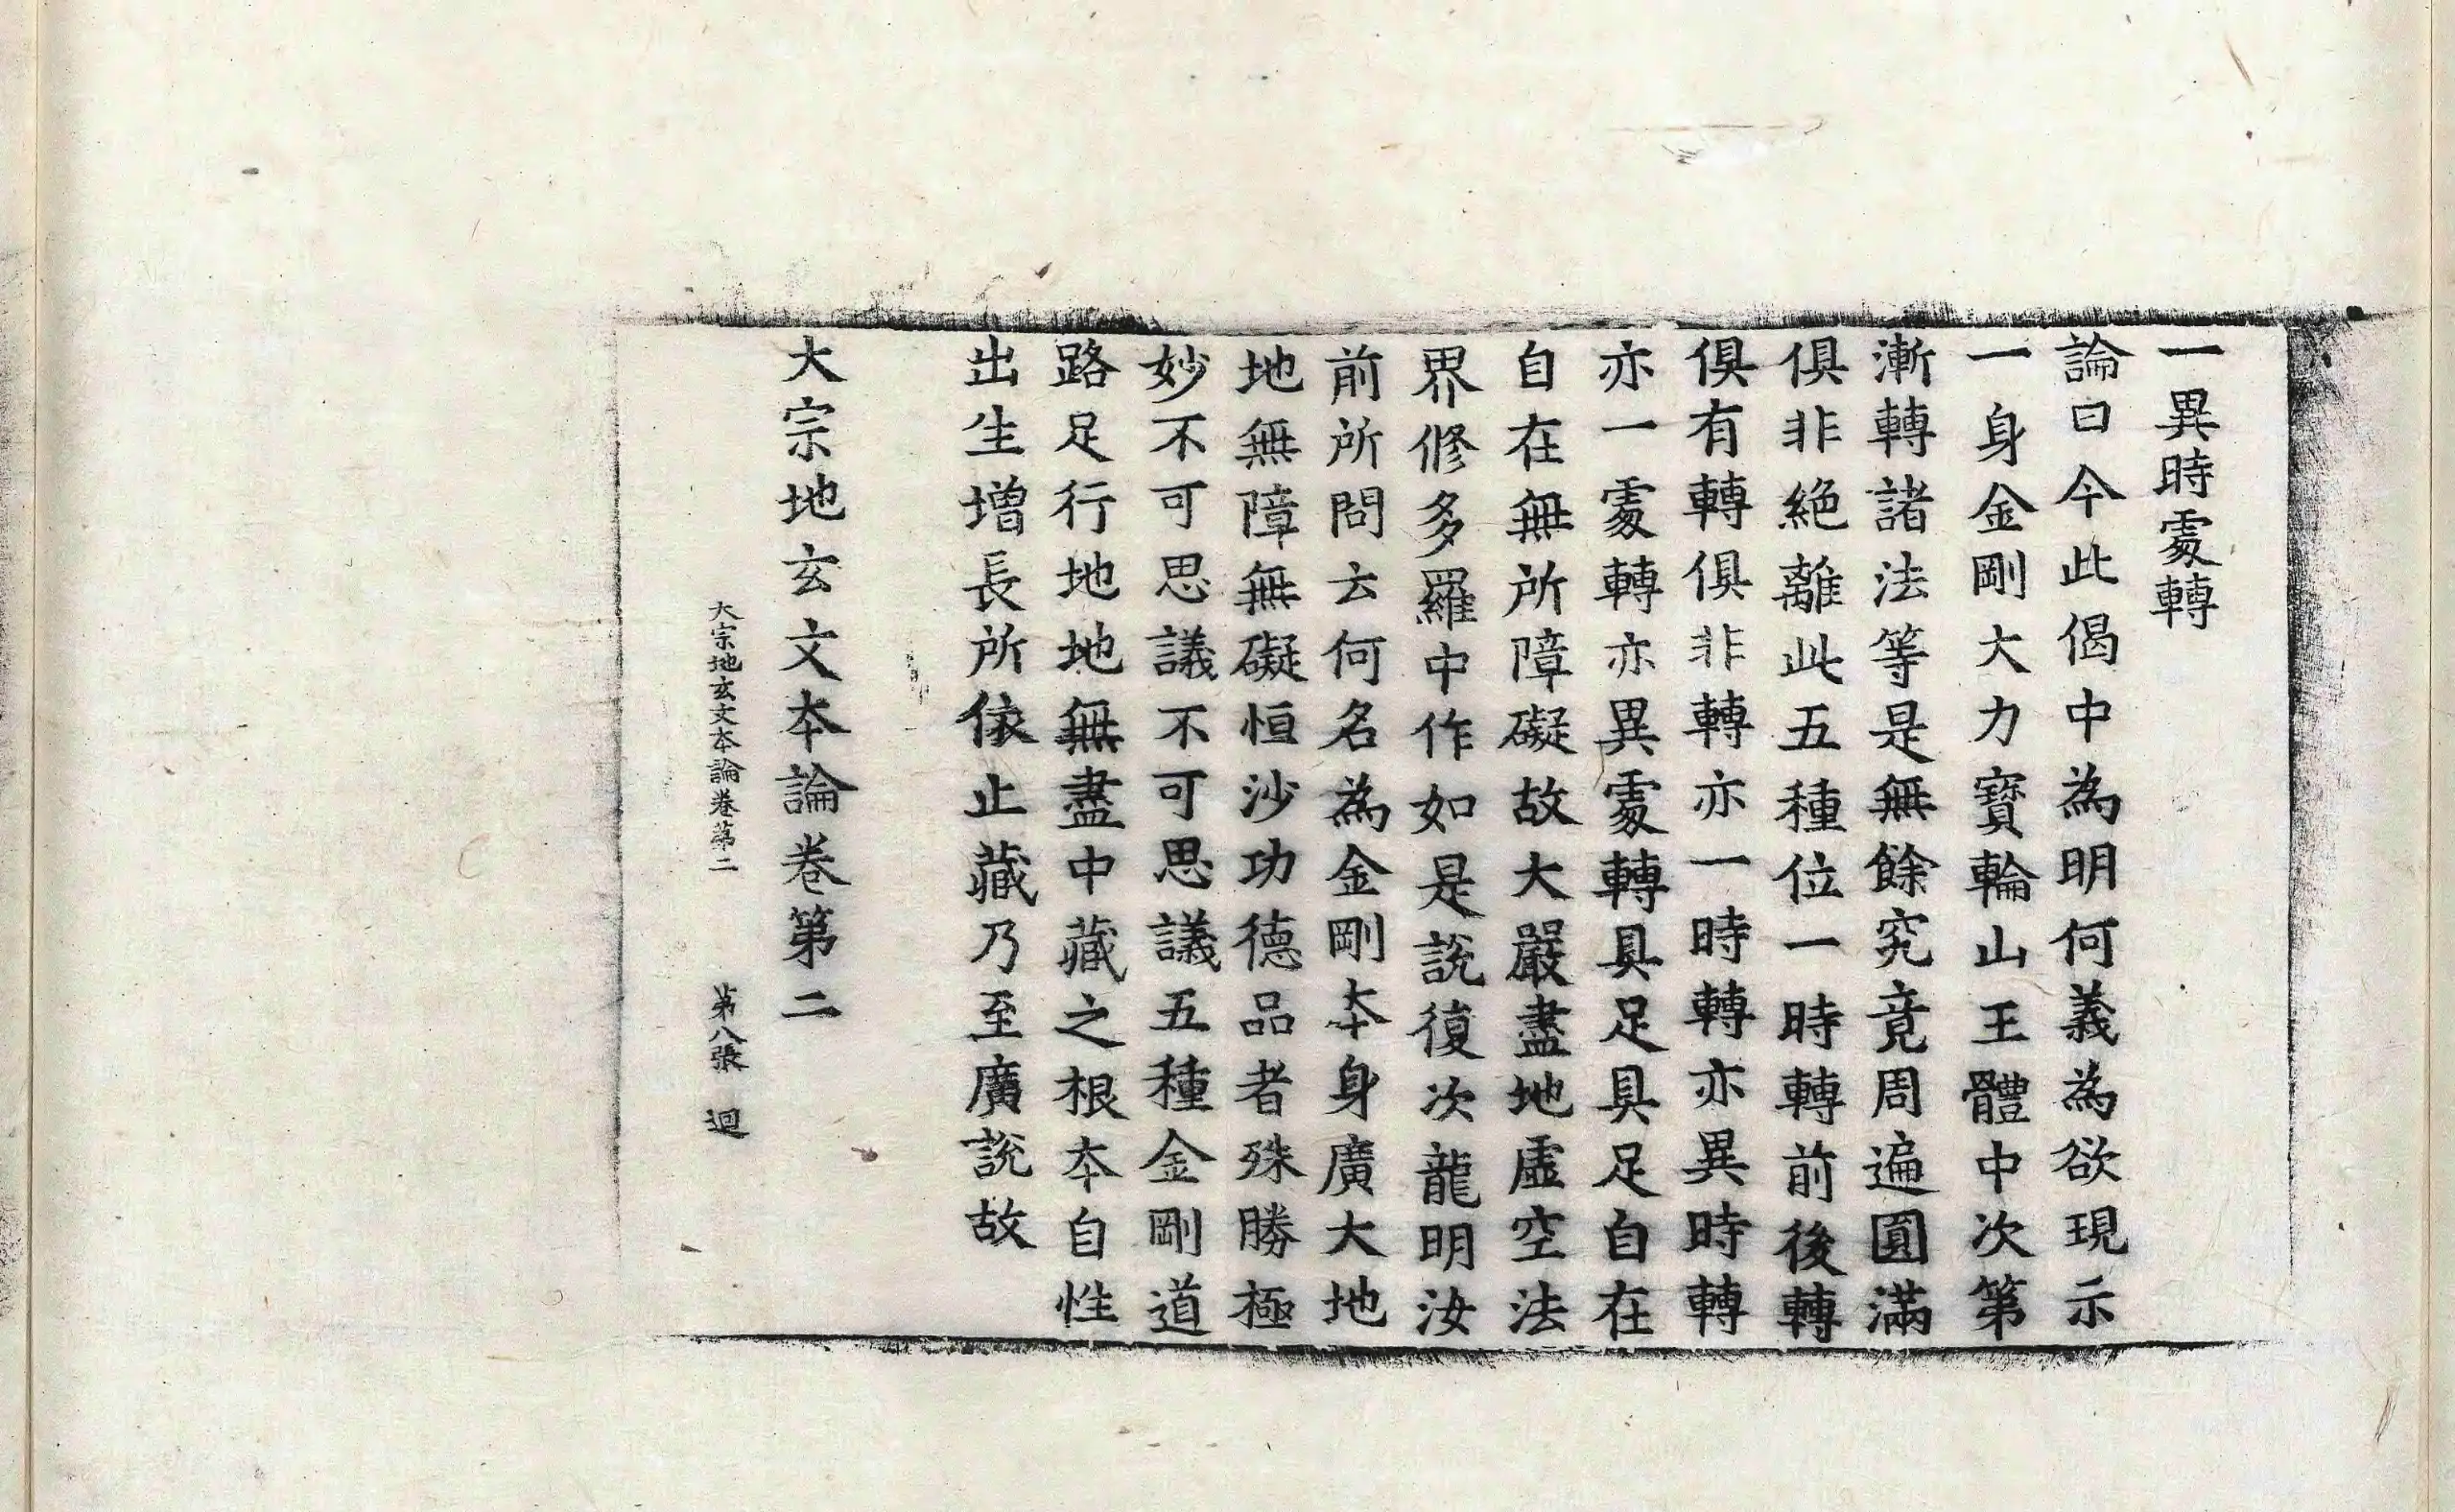 一異時處轉
論曰今此偈中為明何義為欲現示
一身金剛大力寶輪山王體中次第
漸轉諸法等是無餘究竟周遍圓滿
俱非絕離此五種位一時轉前後轉
俱有轉俱非轉亦一時轉亦異時轉
亦一處轉亦異處轉具足具足自在
自在無所障礙故大嚴盡地虛空法
界修多羅中作如是說復次龍明汝
前所問云何名為金剛本身廣大地
地無障無礙恒沙功德品者殊勝極
妙不可思議不可思議五種金剛道
路足行地地無盡中藏之根本自性
出生增長所依止藏乃至廣說故
大宗地玄文本論卷第二
大宗地玄文本論卷第二 第八張 迴